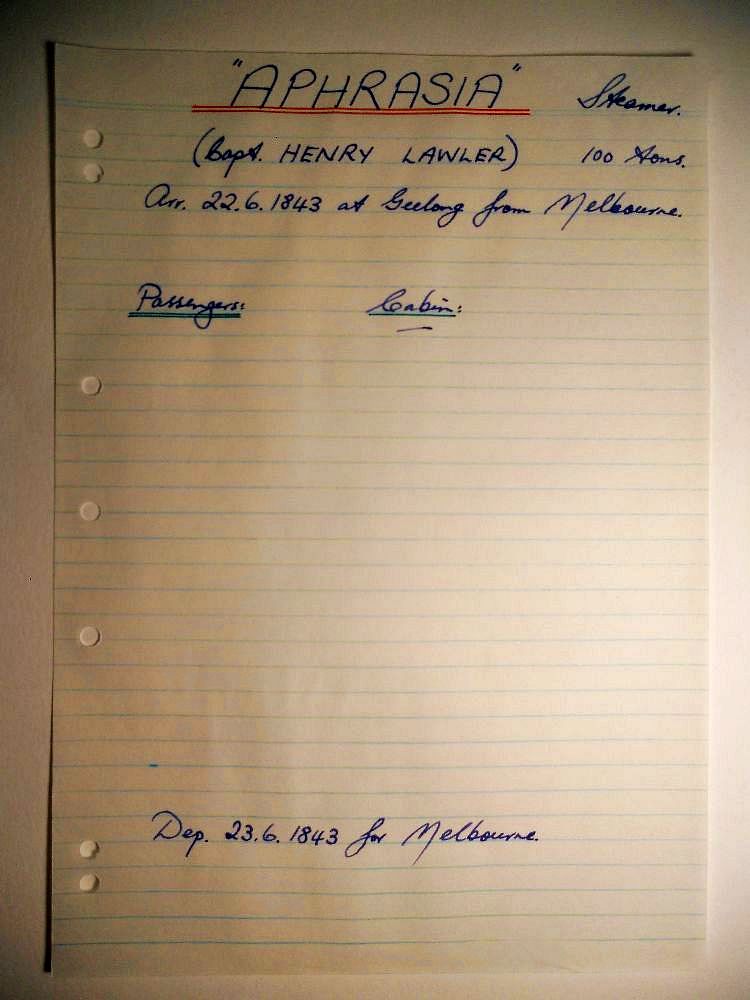 "APHRASIA" Steamer.
(Capt. HENRY LAWLER) 100 Tons.
Arr. 22.6.1843 at Geelong from Melbourne.
Passengers: Cabin:
Dep. 23.6.1843 for Melbourne.